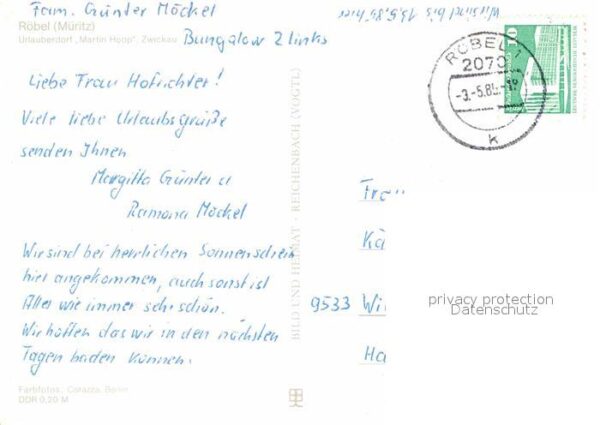 Fam. Günter Möckel
Röbel (Müritz)
Urlauberdorf „Martin Hoop", Zwickau
Bungalow 2 links
Wir sind bis 15.5.85 hier
Liebe Frau Hofrichter!
Viele liebe Urlaubsgrüße
senden Ihnen
Margitta Günter u
Ramona Möckel
Wir sind bei herrlichen Sonnenschein
hier angekommen, auch sonst ist
Alles wie immer sehr schön.
Wir hoffen das wir in den nächsten
Tagen baden können.
Farbfotos: Carazza, Berlin
DDR 0,20 M
BILD UND HEIMAT · REICHENBACH (VOGTL)
RÖBEL 1
2070
-3.-5.85-18
k
10
Frau
Kä
9533 Wi
Ha
privacy protection
Datenschutz